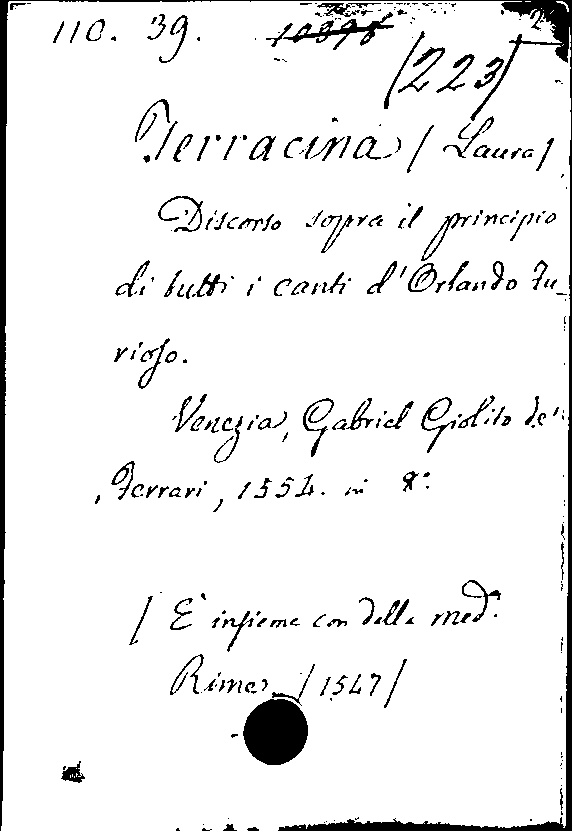 110. 39. 10396 2
(223)
Terracina (Laura)
Discorso sopra il principio
di tutti i canti d'Orlando Fu-
rioso.
Venezia, Gabriel Giolito de'
Ferrari, 1554. in 8°.
( E' insieme con della med.ª
Rime. (1547)